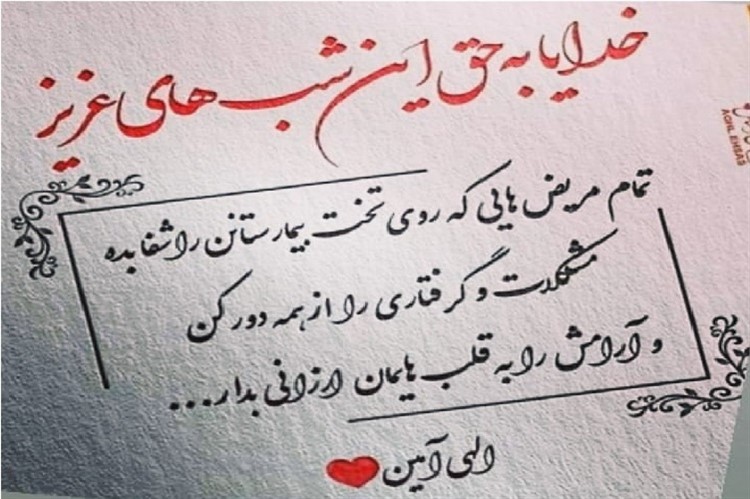 خدایا به حق این شب های عزیز
تمام مریض هایی که روی تخت بیمارستانن را شفا بده
مشکلات و گرفتاری را از همه دور کن
و آرامش را به قلب هایمان ارزانی بدار...
الهی آمین
AGHL EHSAS